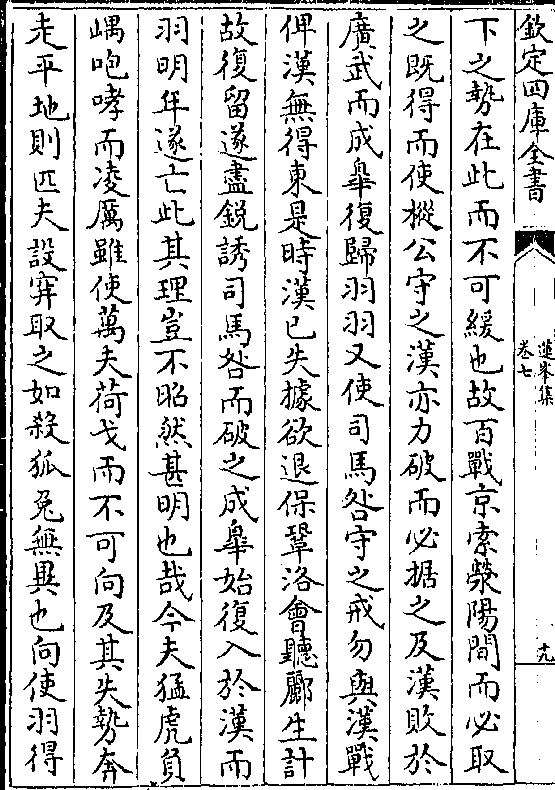 欽定四庫全書
蓮峯集
卷七
十九
下之勢在此而不可緩也故百戰京索滎陽間而必取
之既得而使樅公守之漢亦力破而必据之及漢敗於
廣武而成皋復歸羽羽又使司馬咎守之戒勿與漢戰
俾漢無得東是時漢已失據欲退保鞏洛會聽酈生計
故復留遂盡鋭誘司馬咎而破之成皋始復入於漢而
羽明年遂亡此其理豈不昭然甚明也哉今夫猛虎負
嵎咆哮而凌厲雖使萬夫荷戈而不可向及其失勢奔
走平地則匹夫設穽取之如殺狐兔無異也向使羽得